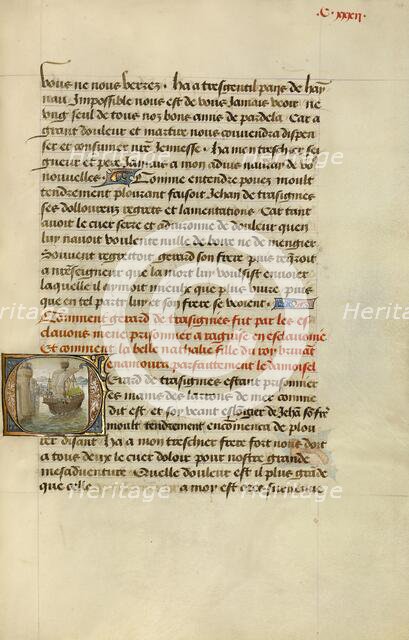 C. xxxii.
vous ne nous verrez. Ha a tresgentil pays de hay
nau Impossible nous est de vous Jamais veoir ne
ung seul de tous noz bons amis de pardela Car a
grant douleur et martire nous couvendra dispen
ser et consumer nre Jennesse. Ha mon treschier sei
gneur et pere Jamais a mon advis naurez de vo
nouvelles. Comme entendre povez moult
tendrement plourant faisoit Jehan de trasignies
ses dolloureux regretz et lamentations Car tant
avoit le cuer serre et aderonne de douleur quen
luy navoit voulente nulle de boire ne de mengier
Souvent regretoit gerard son frere puis
a nreseigneur que la mort luy voulsist envoier
laquelle il aymoit mieulx que plus vivre puis
que en tel party luy et son frere se veoient.
Comment gerard de trasignies fut par les es
clavons mene prisonner a raguise en esclavonnie
Et comment la belle nathalie fille du roy brunamt
enamoura parfaittement le damoisel
Gerard de trasignies estant prisonner
es mains des larrons de mer comme
dit est et soy veant eslogier de Jehan sõ fr̃e
moult tendrement encomenca de plou
rer disant Ha mon treschier frere fort nous doit
a tous deux le cuer doloir pour nostre grande
mesadventure Quelle douleur est il plus grãde
que celle a moy est ores survenue
Heritage
Heritage
Heritage
Heritage
Heritage
Heritage
Heritage
Heritage